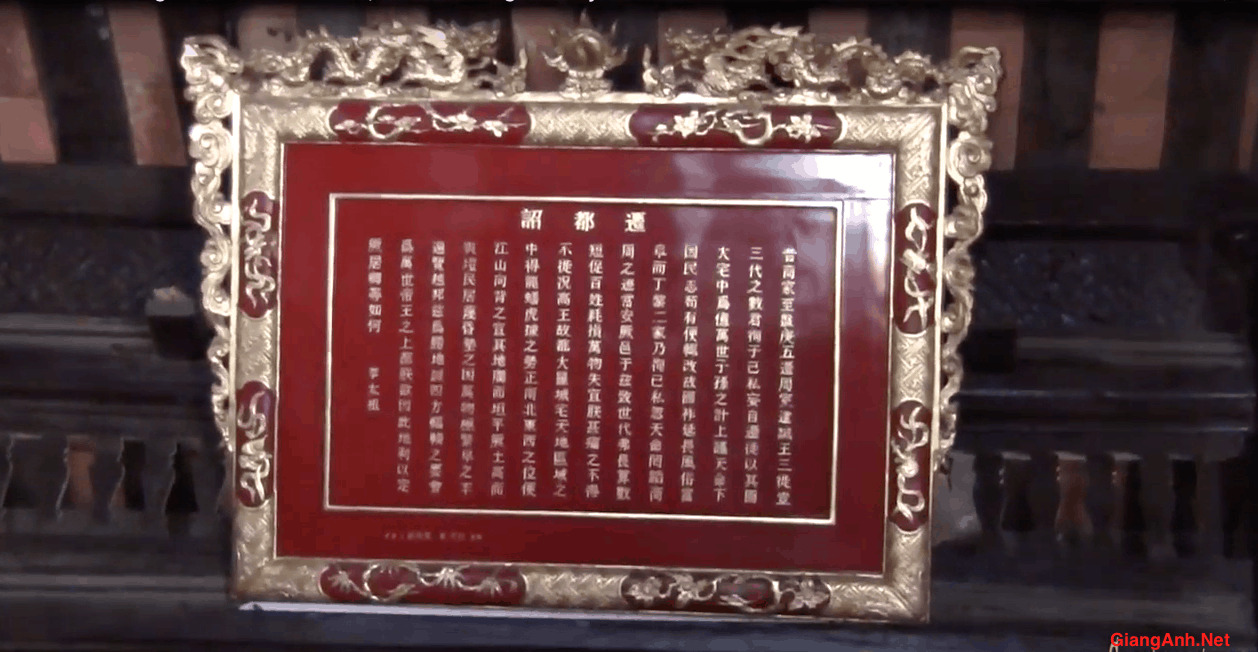 遷都詔
昔商家至盤庚五遷周室逮成王三徙豈
三代之數君徇于己私妄自遷徙以其圖
大宅中爲億萬世子孫之計上謹天命下
因民志苟有便輒改故國祚延長風俗富
阜而丁黎二家乃徇己私忽天命罔蹈商
周之迹常安厥邑于茲致世代弗長算數
短促百姓耗損萬物失宜朕甚痛之不得
不徙況高王故都大羅城宅天地區域之
中得龍蟠虎據之勢正南北東西之位便
江山向背之宜其地廣而坦平厥土高而
爽塏民居蔑昏墊之困萬物極繁阜之丰
遍覽越邦茲爲勝地誠四方輻輳之要會
爲萬世帝王之上都朕欲因此地利以定
厥居卿等如何 李太祖
GiangAnh.Net